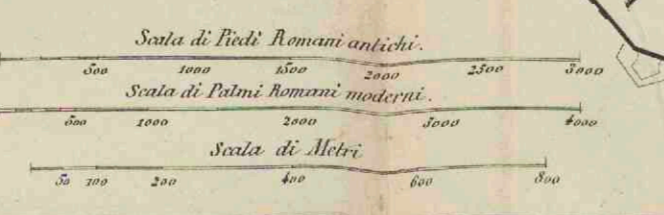 Scala di Piedi Romani antichi.
500 1000 1500 2000 2500 3000
Scala di Palmi Romani moderni.
500 1000 2000 3000 4000
Scala di Metri
50 100 200 400 600 800